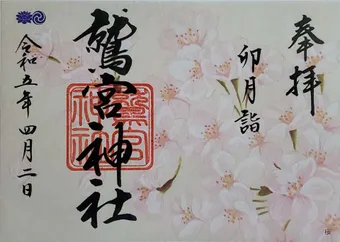 奉拝
卯月詣
鷲宮神社
令和五年四月二日